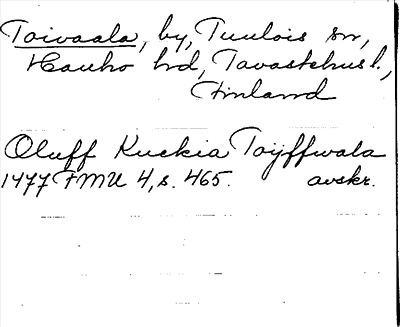 Toivaala, by, Tuulois sn,
Hauho hd, Tavastehus l.,
Finland
Oluff Kuckia Toijffwala
1477 FMU 4, s. 465. avskr.